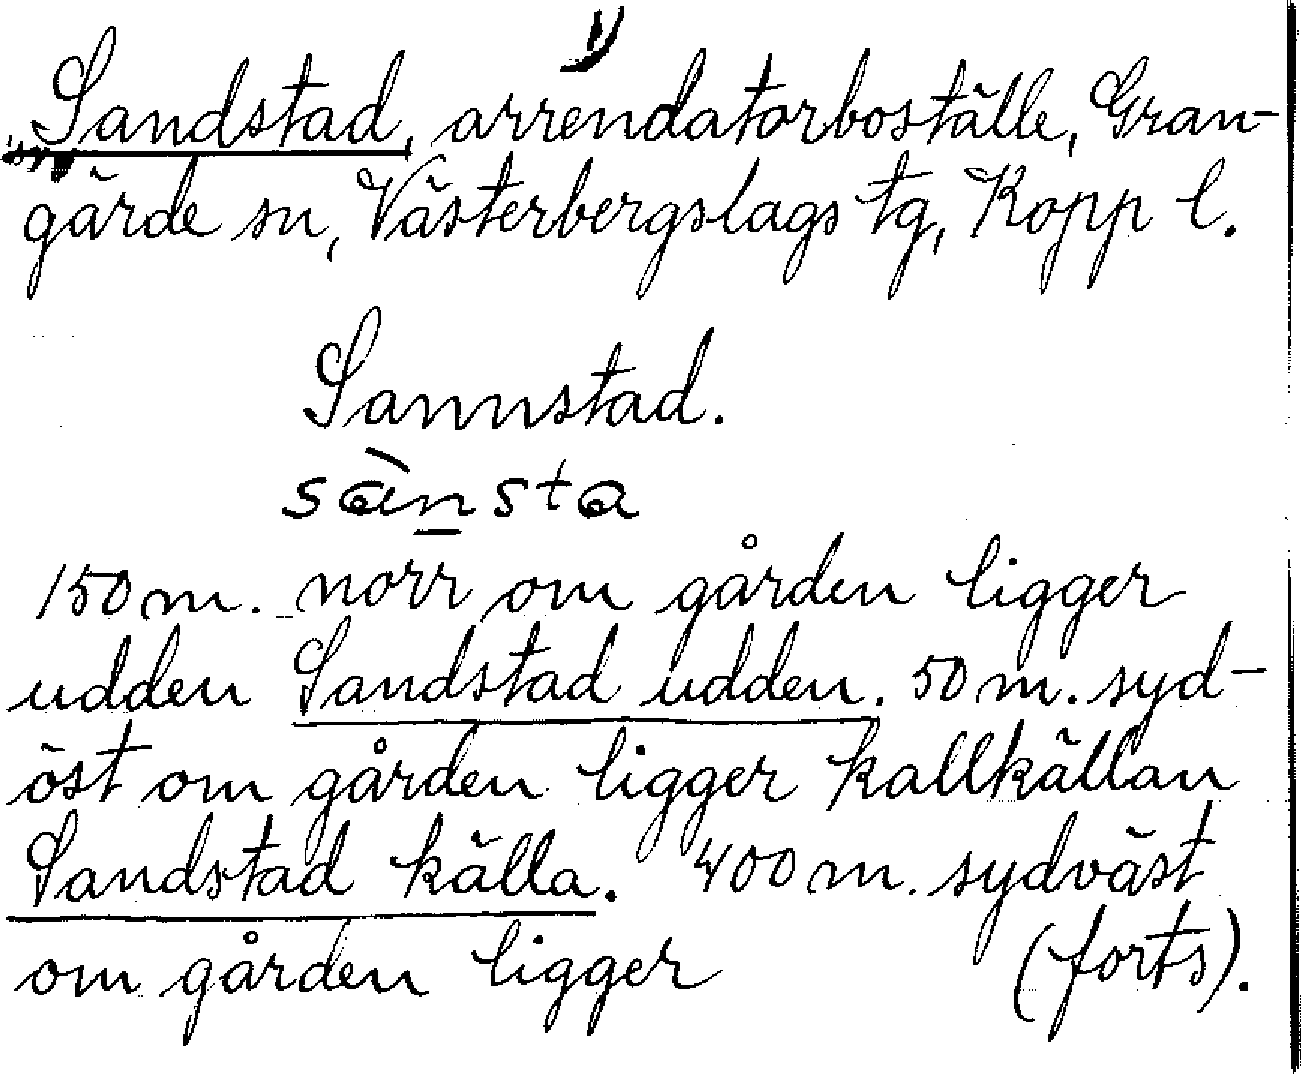 1)
Sandstad, arrendatorboställe, Gran-
gärde sn, Västerbergslags tg, Kopp l.
Sannstad.
sànsta
150 m. norr om gården ligger
udden Sandstad udden. 50 m. syd-
öst om gården ligger kallkällan
Sandstad källa. 400 m. sydväst
om gården ligger (forts).